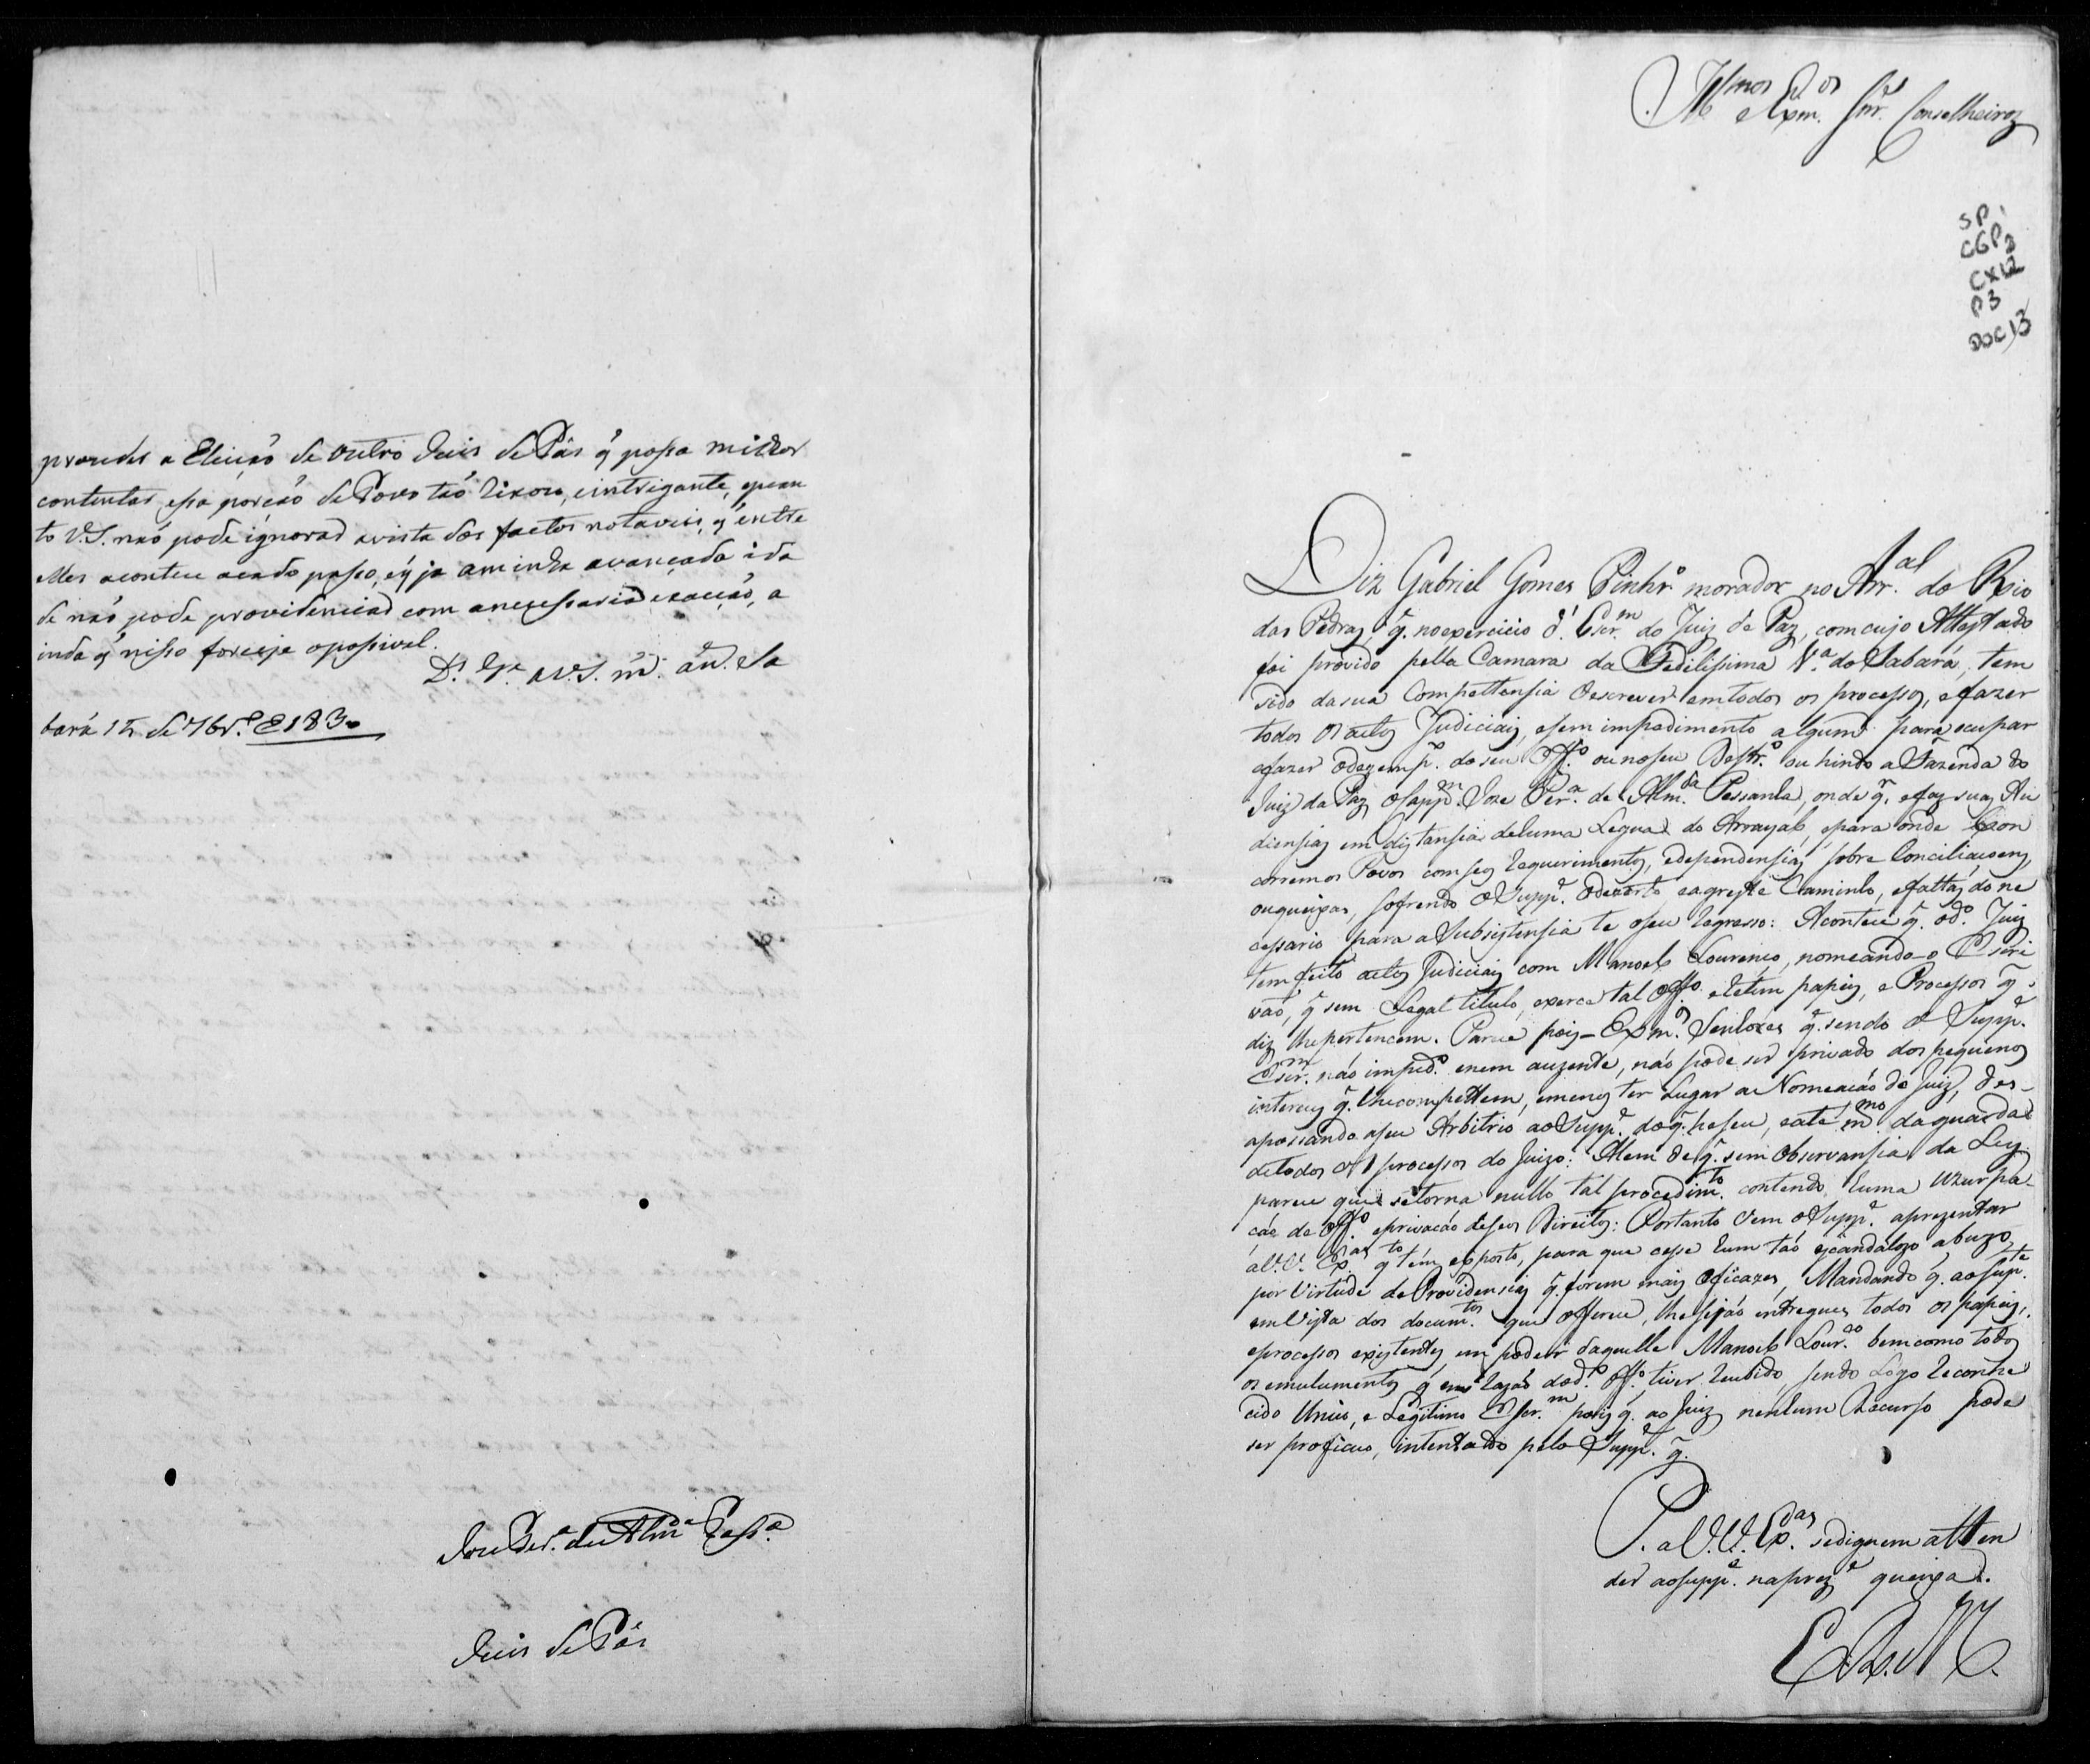 proceder a Eleição de outro Juis de Pás q̃ possa milhor
contentar essa porção de Povo tão rixozo, e intrigante, quan
to V.S. não pode ignorar avista dos factos notaveis, q̃ entre
elles acontece acada passo, eq̃ ja aminha avançada ida
de não pode providenciar com anecessaria exacção, a
inda q̃ nisso forceje opossivel.
D.s G.e a V.S. m.s an.s Sa
bará 15 de 7br.º E 1830
Joze Per.ª de Alm.da Pess.ª
Juis de Pás
Ill.mos e Exm.os Snr.es Conselheiros
SP
CGP 2
CX 12
P 3
DOC 13
Diz Gabriel Gomes Pinhr.º morador no Arr.al do Rio
das Pedras, q̃. noexercicio d'Escr.m do Juiz de Paz, comcujo Attestado
foi provido pella Camara da Fidilissima V.ª do Sabará, tem
sido dasua Compettensia Oescrever emtodos os processos, efazer
todos os actos Judiciais, esem impedimento algum para ocupar
efazer odezemp.º doseu Off.º ou noseu Destr.º ou hindo a Fazenda do
Juiz da Paz oCapp.m Joze Per.ª de Alm.da Pessanha, onde q.r efaz suas Au
diensias em distansia dehuma Legua do Arrayal, epara onde Con
corremos Povos comseus requerimentos, edependensias sobre Conciliacoens,
ouqueixas, sofrendo oSupp.e odezerto eagreste Caminho, efaltas do ne
cessario para aSubsistensia te oseu regresso: Acontece q̃. od.º Juiz
tem feito actos Judiciais com Manoel Lourenço, nomeando-o Escri
vão, q̃ sem Legal titulo, exerce tal Off.º eretem papeis, e Processos q̃
diz lhepertencem. Parece pois Exm.os Senhores q̃. sendo o Supp.e
Escr.m não imped.º enem auzente, não pode ser privado dos pequenos
interces q̃. lhecompettem, emenos ter Lugar a Nomeacáo do Juiz, des-
apossando aseu Arbitrio aoSupp.e doq̃. heseu, eate m.mo daguarda
detodos os processos do Juizo: Alem deq̃. sem Observansia da Ley
parece que setorna nullo tal procedim.to contendo huma uzurpa-
cáo de Off.º eprivacáo deseus Direitos: Portanto vem oSupp.e aprezentar
aV.V. Ex.as q.to tem exposto, para que cesse hum táo escandalozo abuzo,
por virtude deProvidensias q̃. forem mais eficazes, Mandando q̃. aoSup.te
emVista dos docum.tos que offerece, lhesejáo entregues todos os papeis,
eprocessos existentes em poder daquelle Manoel Lour.ço bemcomo todos
os emulumentos q̃ em razáo dod.º Off.º tiver recebido, sendo Logo reconhe
cido Unico, e Legitimo Escr.m pois q̃. ao Juiz nenhum Recurso pode
ser proficuo, intentado pelo Supp.e q̃.
P. aV.V. Ex.as sedignem atten
der aosupp.e naprez.e queixa.
E. R. M.